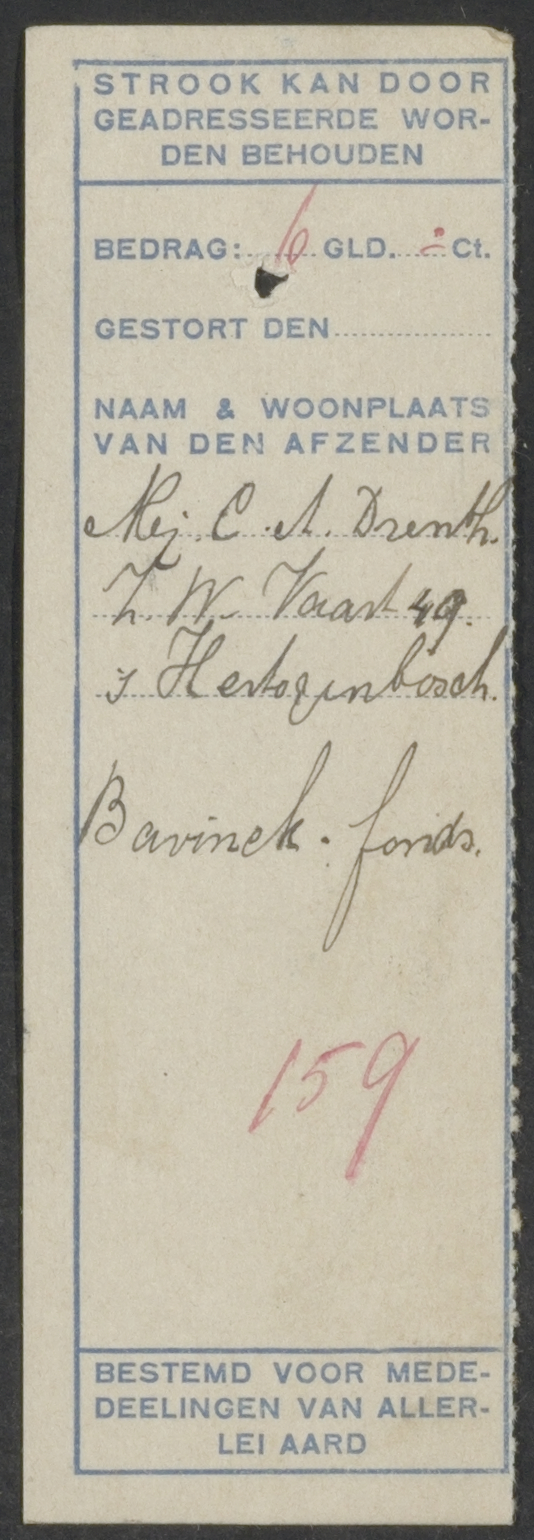 STROOK KAN DOOR
GEADRESSEERDE WOR-
DEN BEHOUDEN
BEDRAG: 6 GLD. - Ct.
GESTORT DEN
NAAM & WOONPLAATS
VAN DEN AFZENDER
Mej. C. A. Drenth.
Z. W. Vaart 49.
s Hertogenbosch.
Bavinck-fonds.
159
BESTEMD VOOR MEDE-
DEELINGEN VAN ALLER-
LEI AARD